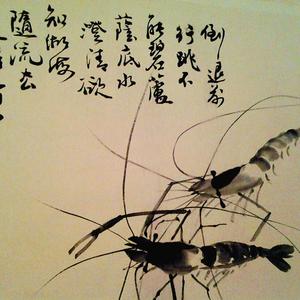 倒退前
行跳不
能碧蘆
蔭底水
澄清欲
知
隨流去